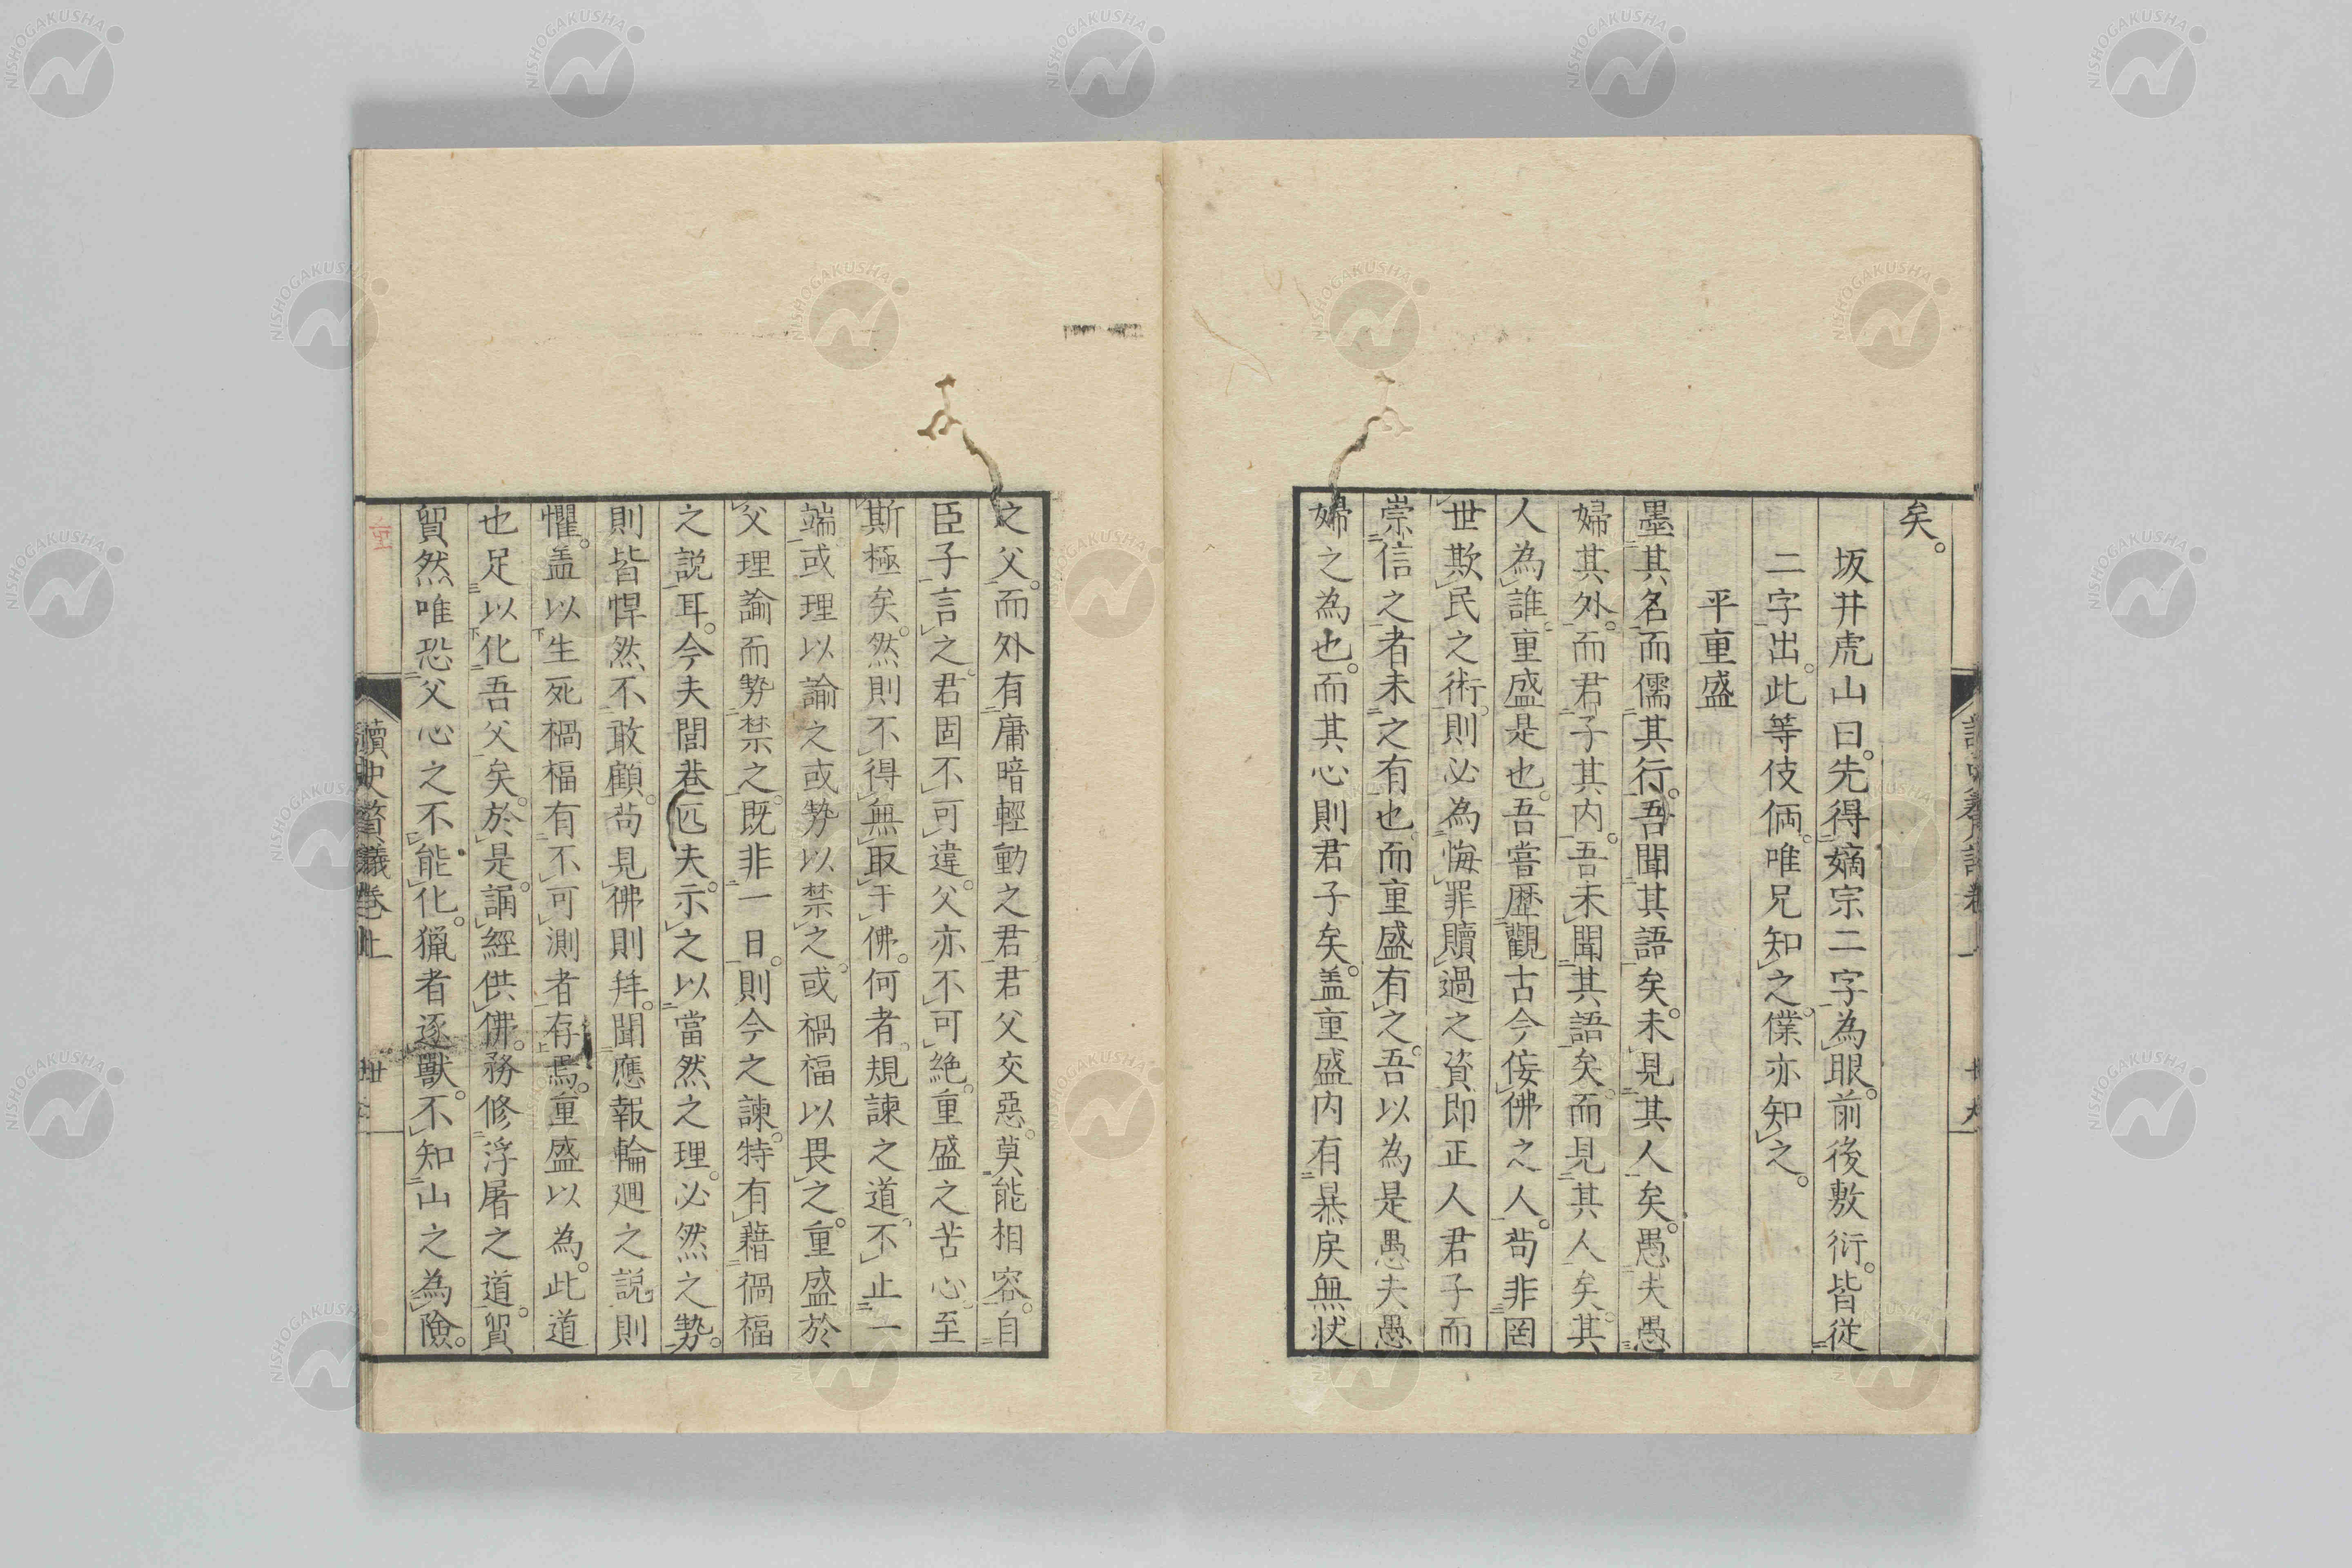 矣。
坂井虎山曰。先得嫡宗二字為眼。前後敷衍。皆從
二字出。此等伎倆。唯兄知之。僕亦知之。
平重盛
墨其名而儒其行。吾聞其語矣。未見其人矣。愚夫愚
婦其外。而君子其内。吾未聞其語矣。而見其人矣。其
人為誰。重盛是也。吾嘗歴觀古今佞佛之人。茍非罔
世欺民之術。則必為悔罪贖過之資。即正人君子而
崇信之者未之有也。而重盛有之。吾以為是愚夫愚
婦之為也。而其心則君子矣。盖重盛内有㬥戾無状
之父。而外有庸暗輕動之君。君父交惡。莫能相容。自
臣子言之。君固不可違。父亦不可絶。重盛之苦心至
斯極矣。然則不得無取于佛。何者。規諫之道。不止一
端。或理以諭之。或勢以禁之。或禍福以畏之。重盛於
父理諭而勢禁之。既非一日。則今之諫。特有藉禍福
之説耳。今夫閭巷匹夫。示之以當然之理。必然之勢。
則皆悍然不敢顧。茍見佛則拜。聞應報輪廻之説則
懼。盖以生死禍福有不可測者存焉。重盛以為。此道
也足以化吾父矣。於是誦經供佛。務修浮屠之道。貿
貿然唯恐父心之不能化。獵者逐獸。不知山之為險。
讀史贅議卷上
NISHOGAKUSHA